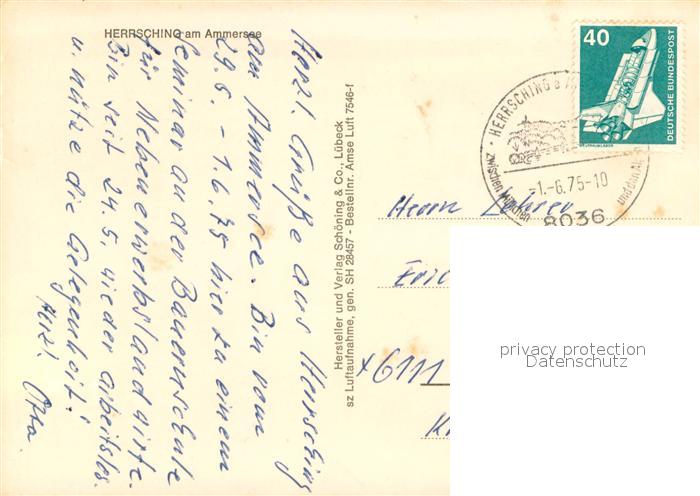 HERRSCHING am Ammersee
Herzl. Grüße aus Herrsching
am Ammersee. Bin vom
29.5. - 1.6.75 hier zu einem
Seminar an der Bauernschule
für Nebenerwerbslandwirte.
Bin seit 24.5. wieder arbeitslos
u. nütze die Gelegenheit!
Herzl.
Hersteller und Verlag Schöning & Co., Lübeck
sz Luftaufnahme, gen. SH 28457 - Bestellnr. Amse Luft 7546-f
40
DEUTSCHE BUNDESPOST
WELTRAUMLABOR
HERRSCHING a
zwischen München und den
-1.-6.75-10
8036
Herrn Lehrer
Eric
6111
K
privacy protection
Datenschutz